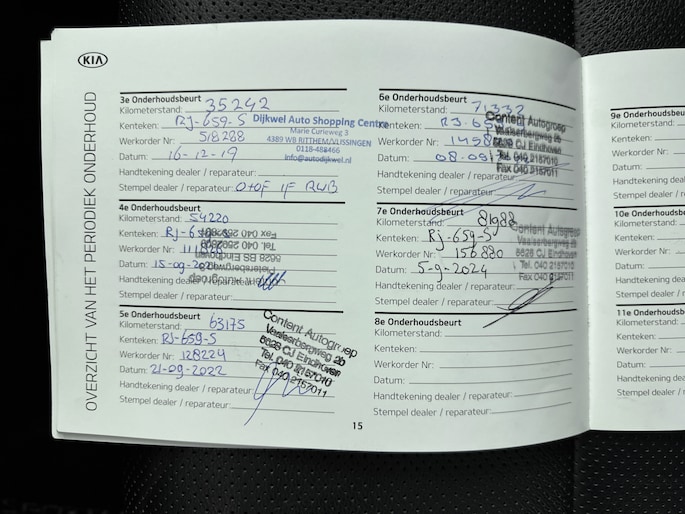 KIA
OVERZICHT VAN HET PERIODIEK ONDERHOUD
3e Onderhoudsbeurt
Kilometerstand: 35242
Kenteken: RJ-659-S
Werkorder Nr: 518288
Datum: 16-12-19
Handtekening dealer / reparateur:
Stempel dealer / reparateur: O+OF IF RWB
Dijkwel Auto Shopping Centre
Marie Curieweg 3
4389 WB RITTHEM/VLISSINGEN
0118-488466
info@autodijkwel.nl
4e Onderhoudsbeurt
Kilometerstand: 54220
Kenteken: RJ-6
Werkorder Nr:
Datum: 15-09-202
Handtekening dealer / reparateur:
Stempel dealer / reparateur:
5e Onderhoudsbeurt
Kilometerstand: 63175
Kenteken: RJ-659-S
Werkorder Nr: 128224
Datum: 21-09-2022
Handtekening dealer / reparateur:
Stempel dealer / reparateur:
Content Autogroep
Vaalserbergweg 2b
5628 CJ Eindhoven
Tel. 040 2157010
Fax 040 2157011
6e Onderhoudsbeurt
Kilometerstand: 71332
Kenteken: RJ-65
Werkorder Nr: 1458
Datum: 08-09
Handtekening dealer / reparateur:
Stempel dealer / reparateur:
Content Autogroep
Vaalserbergweg 2b
5628 CJ Eindhoven
Tel. 040 2157010
Fax 040 2157011
7e Onderhoudsbeurt
Kilometerstand: 81988
Kenteken: RJ-659-S
Werkorder Nr: 156880
Datum: 5-9-2024
Handtekening dealer / reparateur:
Stempel dealer / reparateur:
Content Autogroep
Vaalserbergweg 2b
5628 CJ Eindhoven
Tel. 040 2157010
Fax 040 2157011
8e Onderhoudsbeurt
Kilometerstand:
Kenteken:
Werkorder Nr:
Datum:
Handtekening dealer / reparateur:
Stempel dealer / reparateur:
15
9e Onderhoudsbeu
Kilometerstand:
Kenteken:
Werkorder Nr:
Datum:
Handtekening deal
Stempel dealer / r
10e Onderhoudsbe
Kilometerstand:
Kenteken:
Werkorder Nr:
Datum:
Handtekening dea
Stempel dealer / r
11e Onderhoudsbe
Kilometerstand:
Kenteken:
Werkorder Nr:
Datum:
Handtekening dea
Stempel dealer / r